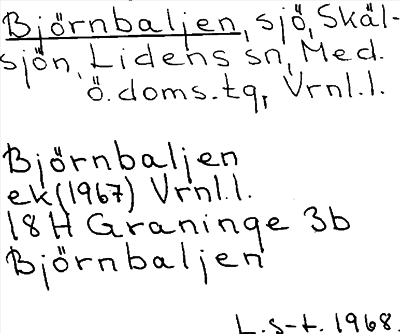 Björnbaljen, sjö, Skäl-
sjön, Lidens sn, Med.
Ö. doms.tg, Vrnl.l.
Björnbaljen
ek (1967) Vrnl.l.
18H Graninge 3b
Björnbaljen
L.s-t. 1968.